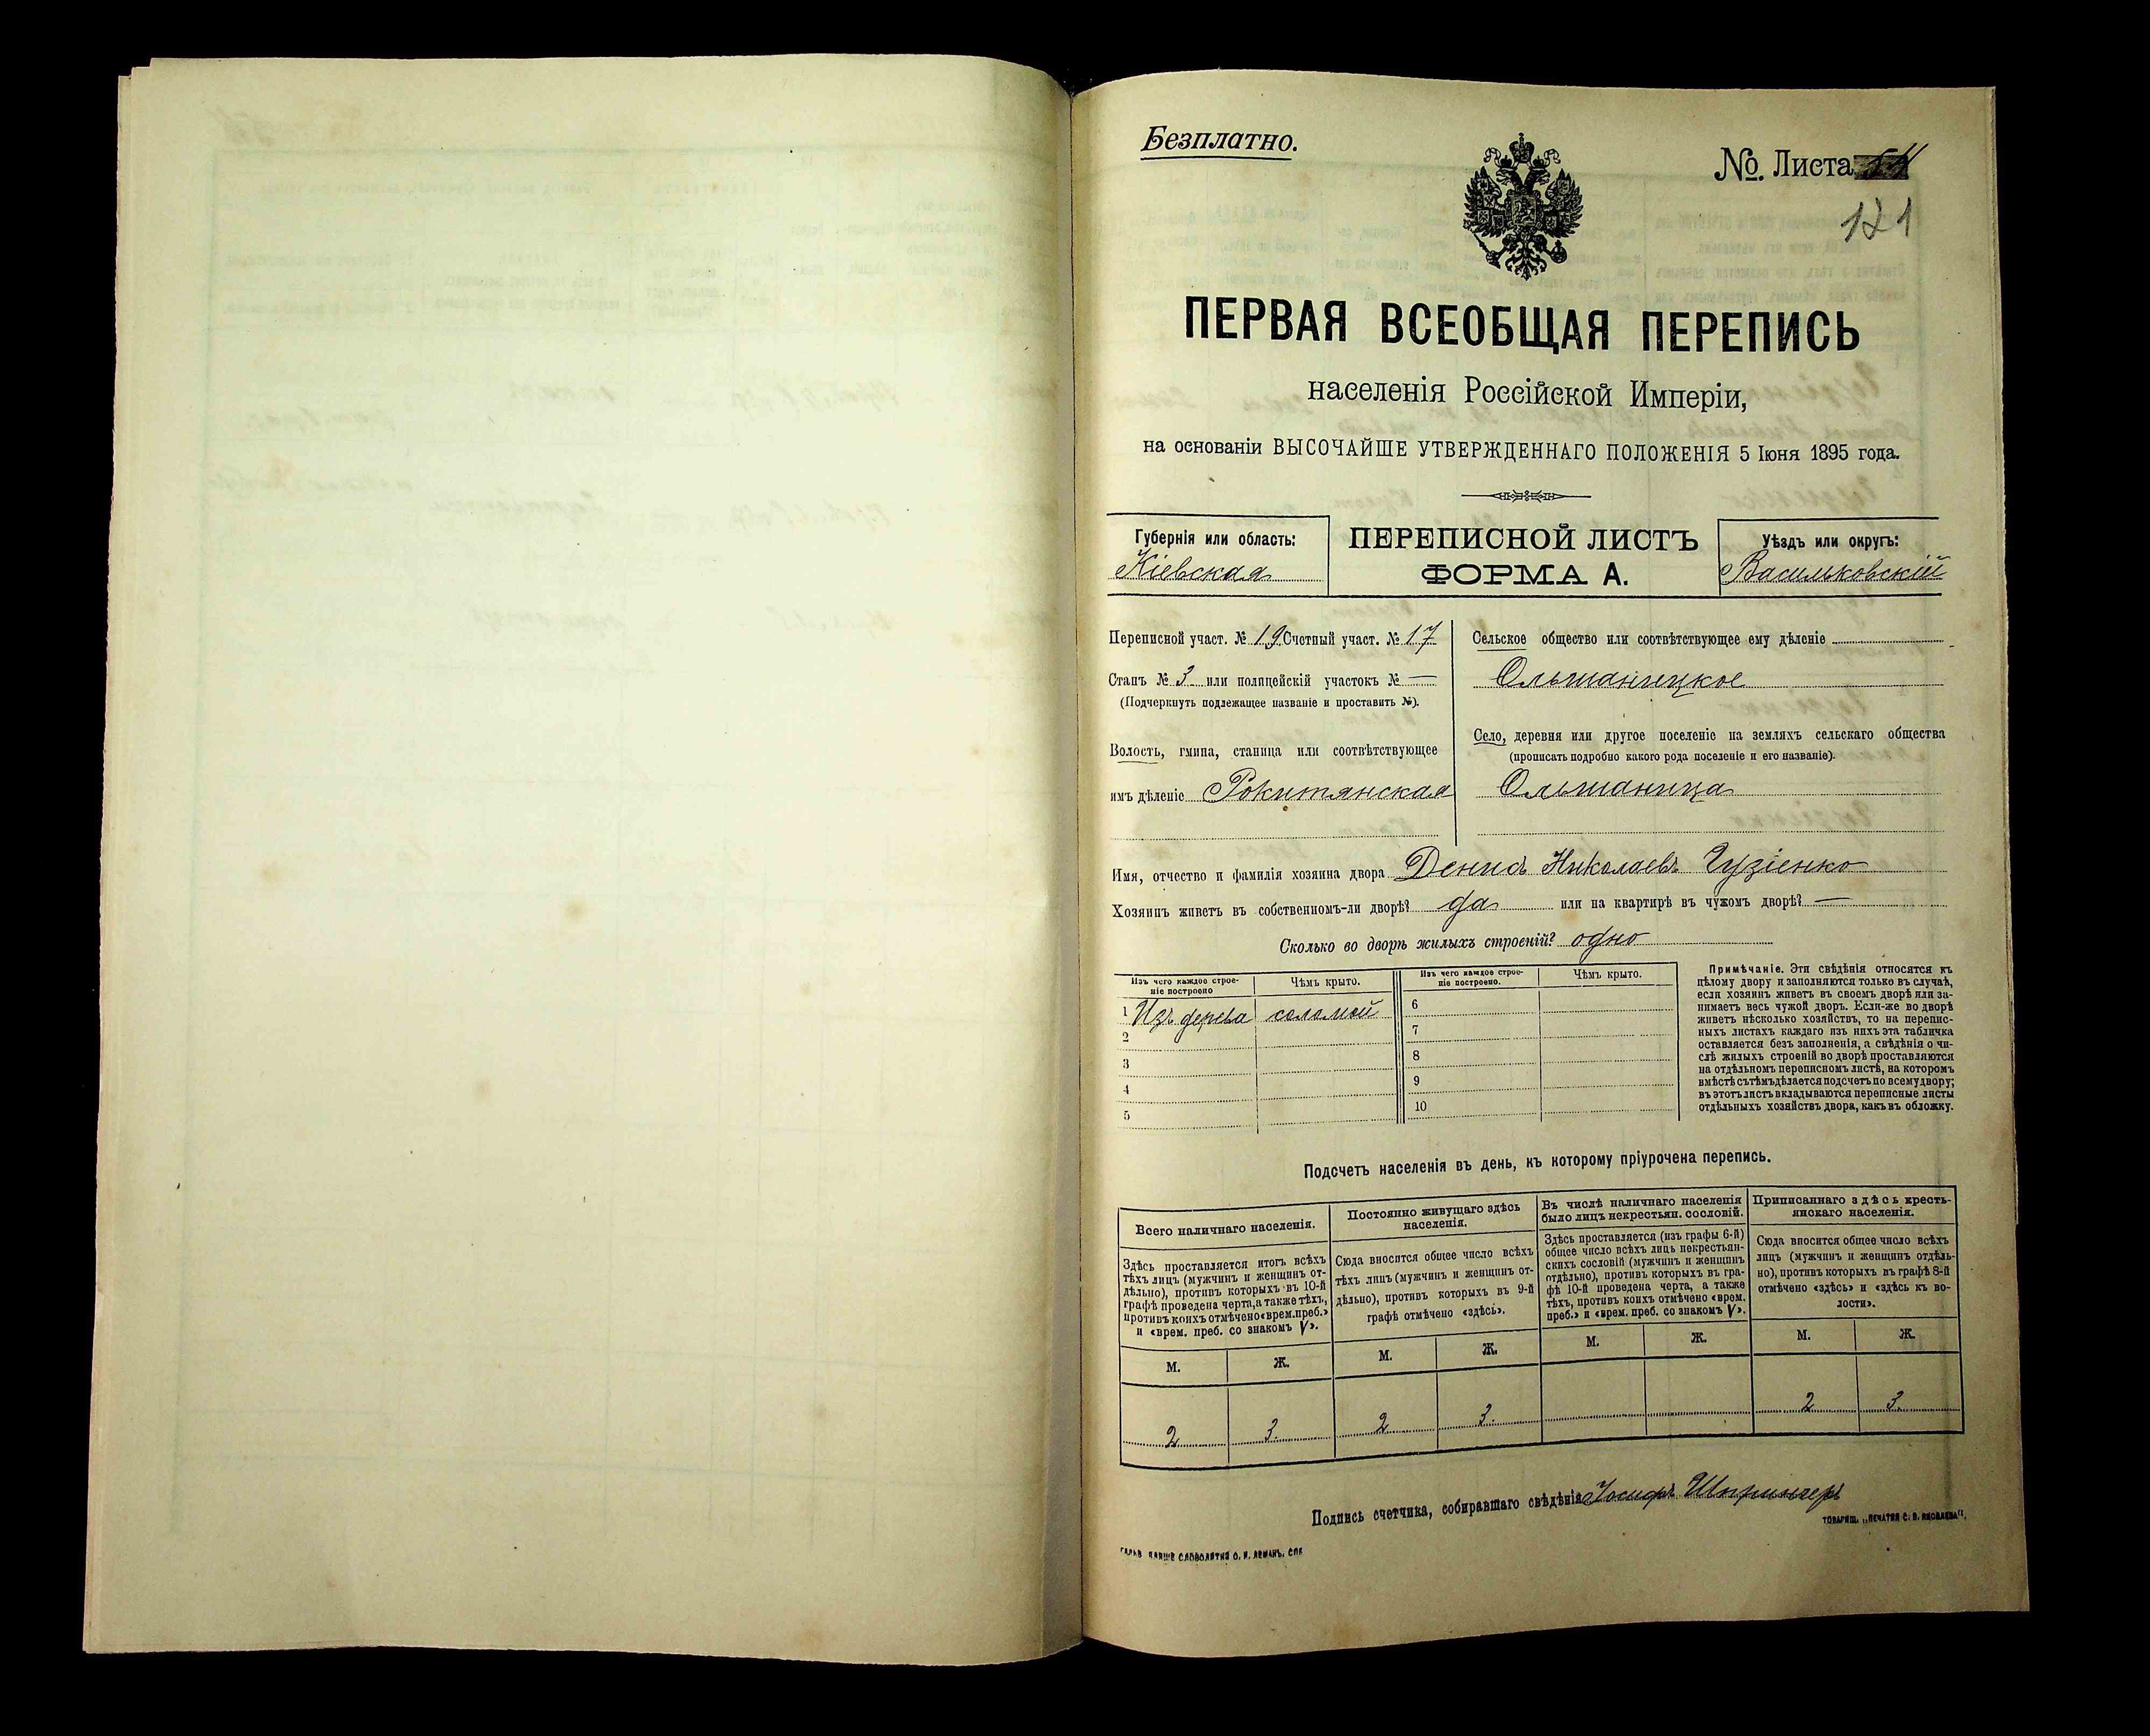 Безплатно.
№. Листа 54
121
ПЕРВАЯ ВСЕОБЩАЯ ПЕРЕПИСЬ
населенія Россійской Имперіи,
на основаніи ВЫСОЧАЙШЕ УТВЕРЖДЕННАГО ПОЛОЖЕНІЯ 5 Іюня 1895 года.
Губернія или область:
Кіевская
ПЕРЕПИСНОЙ ЛИСТЪ
ФОРМА А.
Уѣздъ или округъ:
Васильковскій
Переписной участ. № 19 Счетный участ. № 17
Станъ № 3 или полицейскій участокъ № —
(Подчеркнуть подлежащее названіе и проставить №).
Волость, гмина, станица или соотвѣтствующее
имъ дѣленіе Рокитянская
Сельское общество или соотвѣтствующее ему дѣленіе
Ольшаницкое
Село, деревня или другое поселеніе на земляхъ сельскаго общества
(прописать подробно какого рода поселеніе и его названіе).
Ольшаница
Имя, отчество и фамилія хозяина двора Денисъ Николаевъ Гузіенко
Хозяинъ живетъ въ собственномъ-ли дворѣ? да или на квартирѣ въ чужомъ дворѣ? —
Сколько во дворѣ жилыхъ строеній? одно
Изъ чего каждое строе-
ніе построено
Чѣмъ крыто.
Изъ чего каждое строе-
ніе построено.
Чѣмъ крыто.
1 Изъ дерева соломой
2
3
4
5
6
7
8
9
10
Примѣчаніе. Эти свѣдѣнія относятся къ
цѣлому двору и заполняются только въ случаѣ,
если хозяинъ живетъ въ своемъ дворѣ или за-
нимаетъ весь чужой дворъ. Если-же во дворѣ
живетъ нѣсколько хозяйствъ, то на перепис-
ныхъ листахъ каждаго изъ нихъ эта табличка
оставляется безъ заполненія, а свѣдѣнія о чи-
слѣ жилыхъ строеній во дворѣ проставляются
на отдѣльномъ переписномъ листѣ, на которомъ
вмѣстѣ съ тѣмъ дѣлается подсчетъ по всему двору;
въ этотъ листъ вкладываются переписные листы
отдѣльныхъ хозяйствъ двора, какъ въ обложку.
Подсчетъ населенія въ день, къ которому пріурочена перепись.
Всего наличнаго населенія.
Здѣсь проставляется итогъ всѣхъ
тѣхъ лицъ (мужчинъ и женщинъ от-
дѣльно), противъ которыхъ въ 10-й
графѣ проведена черта, а также тѣхъ,
противъ коихъ отмѣчено «врем. преб.»
и «врем. преб. со знакомъ V».
М. Ж.
2 3.
Постоянно живущаго здѣсь
населенія.
Сюда вносится общее число всѣхъ
тѣхъ лицъ (мужчинъ и женщинъ от-
дѣльно), противъ которыхъ въ 9-й
графѣ отмѣчено «здѣсь».
М. Ж.
2 3.
Въ числѣ наличнаго населенія
было лицъ некрестьян. сословій.
Здѣсь проставляется (изъ графы 6-й)
общее число всѣхъ лицъ некрестьян-
скихъ сословій (мужчинъ и женщинъ
отдѣльно), противъ которыхъ въ гра-
фѣ 10-й проведена черта, а также
тѣхъ, противъ коихъ отмѣчено «врем.
преб.» и «врем. преб. со знакомъ V».
М. Ж.
Приписаннаго здѣсь кресть-
янскаго населенія.
Сюда вносится общее число всѣхъ
лицъ (мужчинъ и женщинъ отдѣль-
но), противъ которыхъ въ графѣ 8-й
отмѣчено «здѣсь» и «здѣсь къ во-
лости».
М. Ж.
2 3.
Подпись счетчика, собиравшаго свѣдѣнія Іосифъ Шпрингеръ
ТОВАРИЩ. „ПЕЧАТНЯ С. П. ЯКОВЛЕВА“.
СЛОВОЛИТНЯ О. И. ЛЕМАНЪ. СПБ